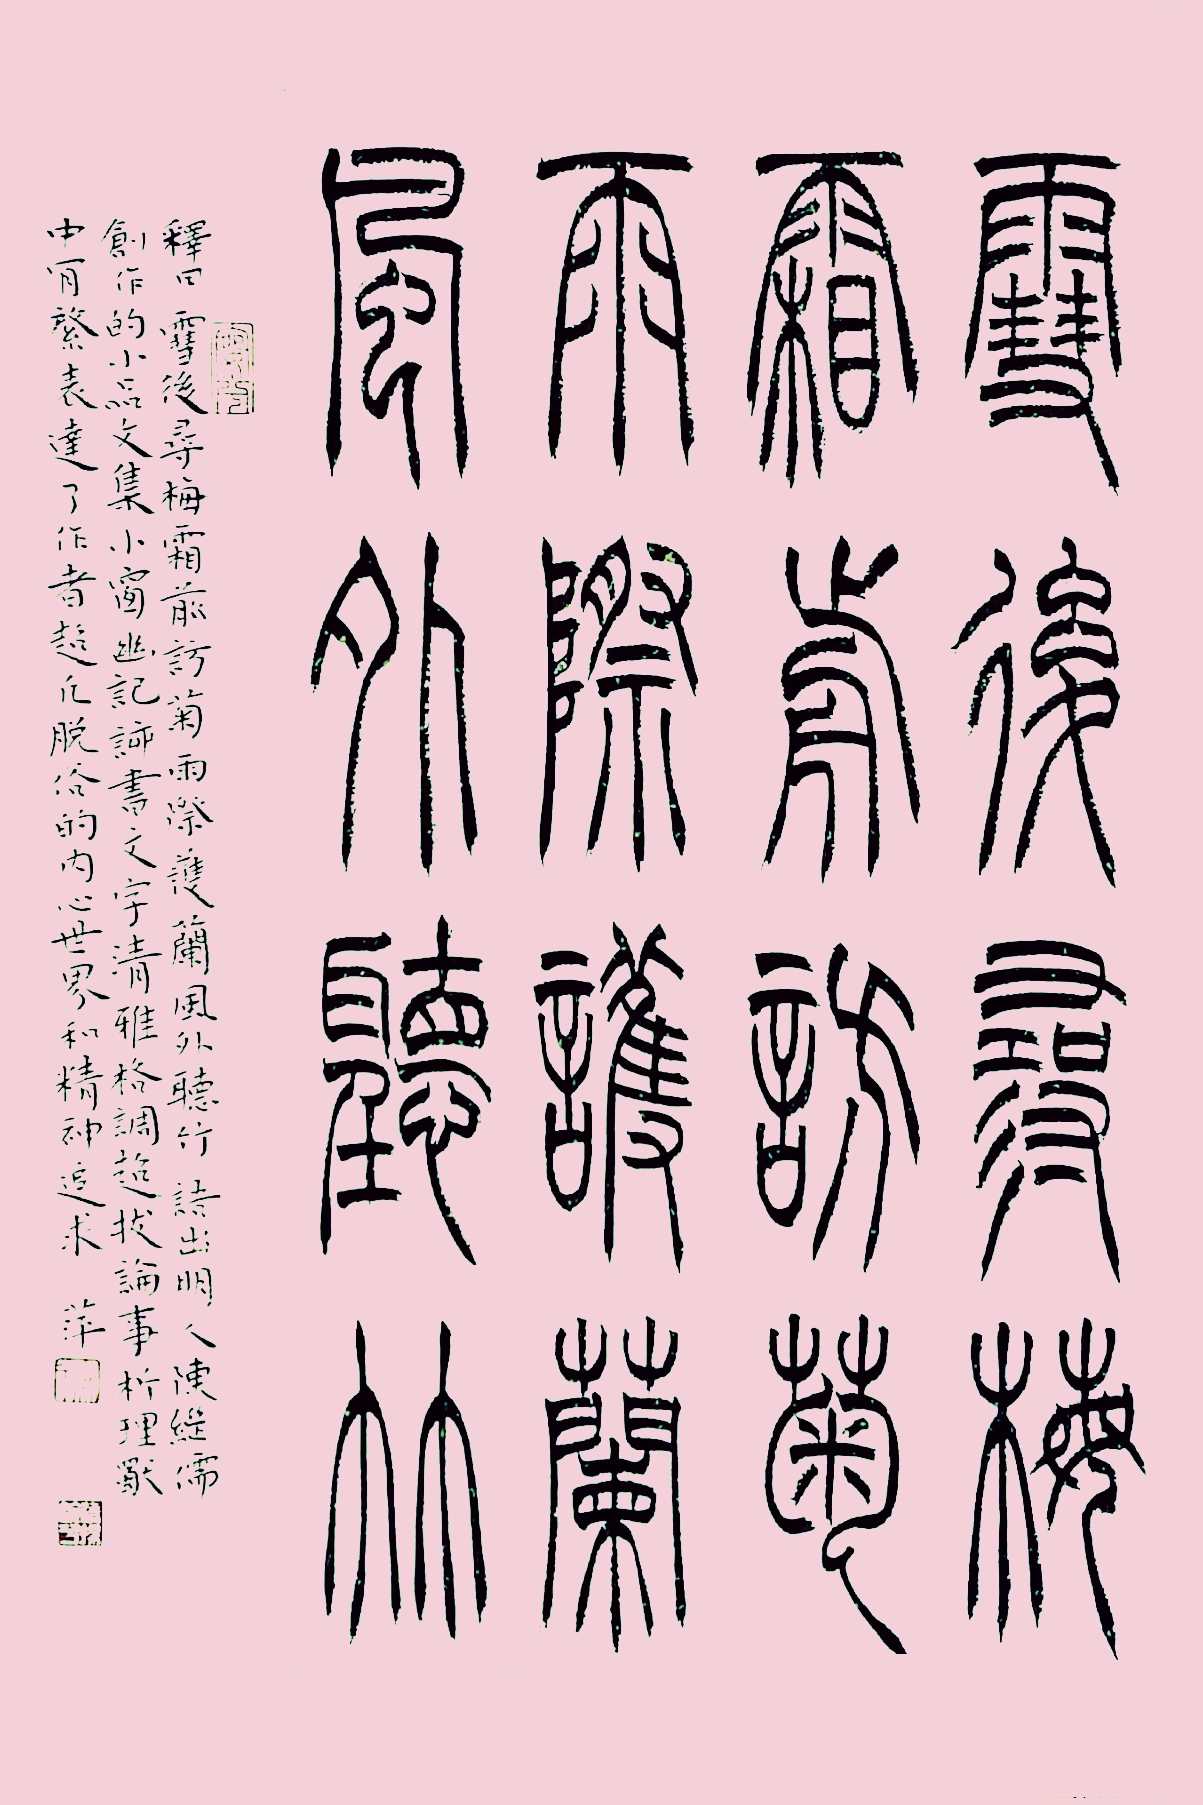 雪後尋梅
霜前訪菊
雨際護蘭
風外聽竹
釋曰雪後尋梅霜前訪菊雨際護蘭風外聽竹 詩出明人陳繼儒
創作的小品文集小窗幽記 書文字清雅格調超拔論事析理獸
中肯綮表達了作者超凡脫俗的內心世界和精神追求 萍